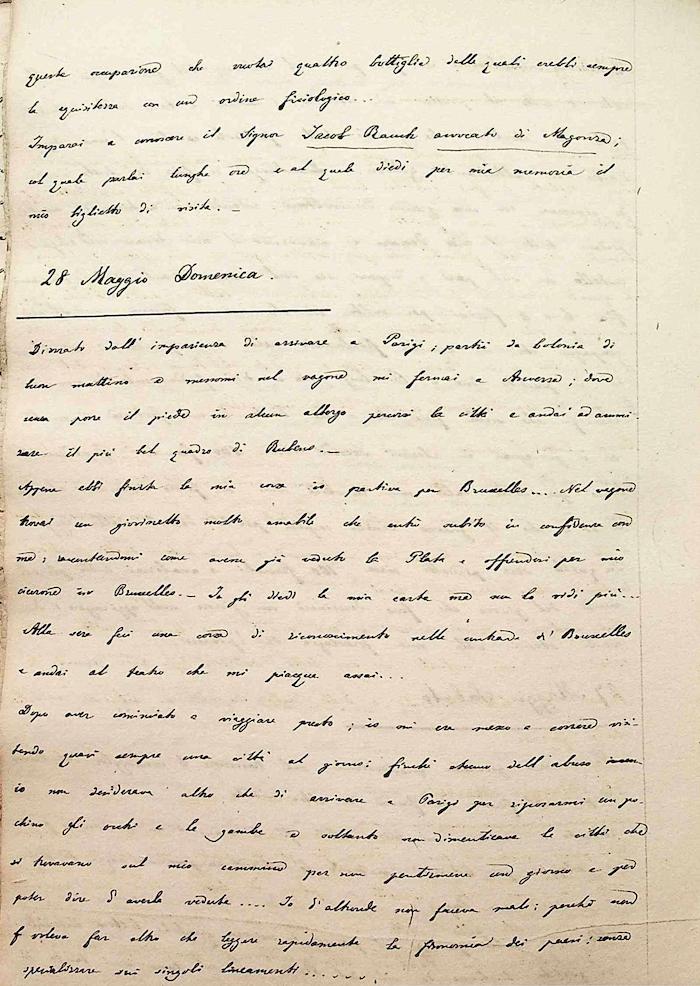 queste occupazione che vuotai quattro bottiglie delle quali crebbi sempre
la squisitezza con un ordine fisiologico...
Imparai a conoscere il Signor Jacob Rauch avvocato di Magonza;
col quale parlai lunghe ore e al quale diedi per mia memoria il
mio biglietto di visita. —
28 Maggio Domenica.
Divorato dall' impazienza di arrivare a Parigi; partii da Colonia di
buon mattino e messomi nel vagone mi fermai a Anversa; dove
senza porre il piede in alcun albergo percorsi la città e andai ad ammi-
rare il più bel quadro di Rubens. —
Appena ebbi finita la mia corsa io partiva per Bruxelles... Nel vagone
trovai un giovinetto molto amabile che entrò subito in confidenza con
me; raccontandomi come avesse già veduto la Plata e offrendosi per mio
cicerone in Bruxelles. — Io gli diedi la mia carta ma non lo vidi più...
Alla sera feci una corsa di riconoscimento nelle contrade di Bruxelles
e andai al teatro che mi piacque assai...
Dopo aver cominciato a viaggiare presto; io mi era messo a correre visi-
tando quasi sempre una città al giorno; finché dell' abuso
io non desiderava altro che di arrivare a Parigi per riposarmi un po-
chino gli occhi e le gambe e soltanto non dimenticava le città che
si trovavano sul mio cammino per non pentirmene un giorno e per
poter dire d' averle vedute.... Io d' altronde non faceva male; perché non
voleva far altro che leggere rapidamente la fisonomia dei paesi; senza
specializzare sui singoli lineamenti......